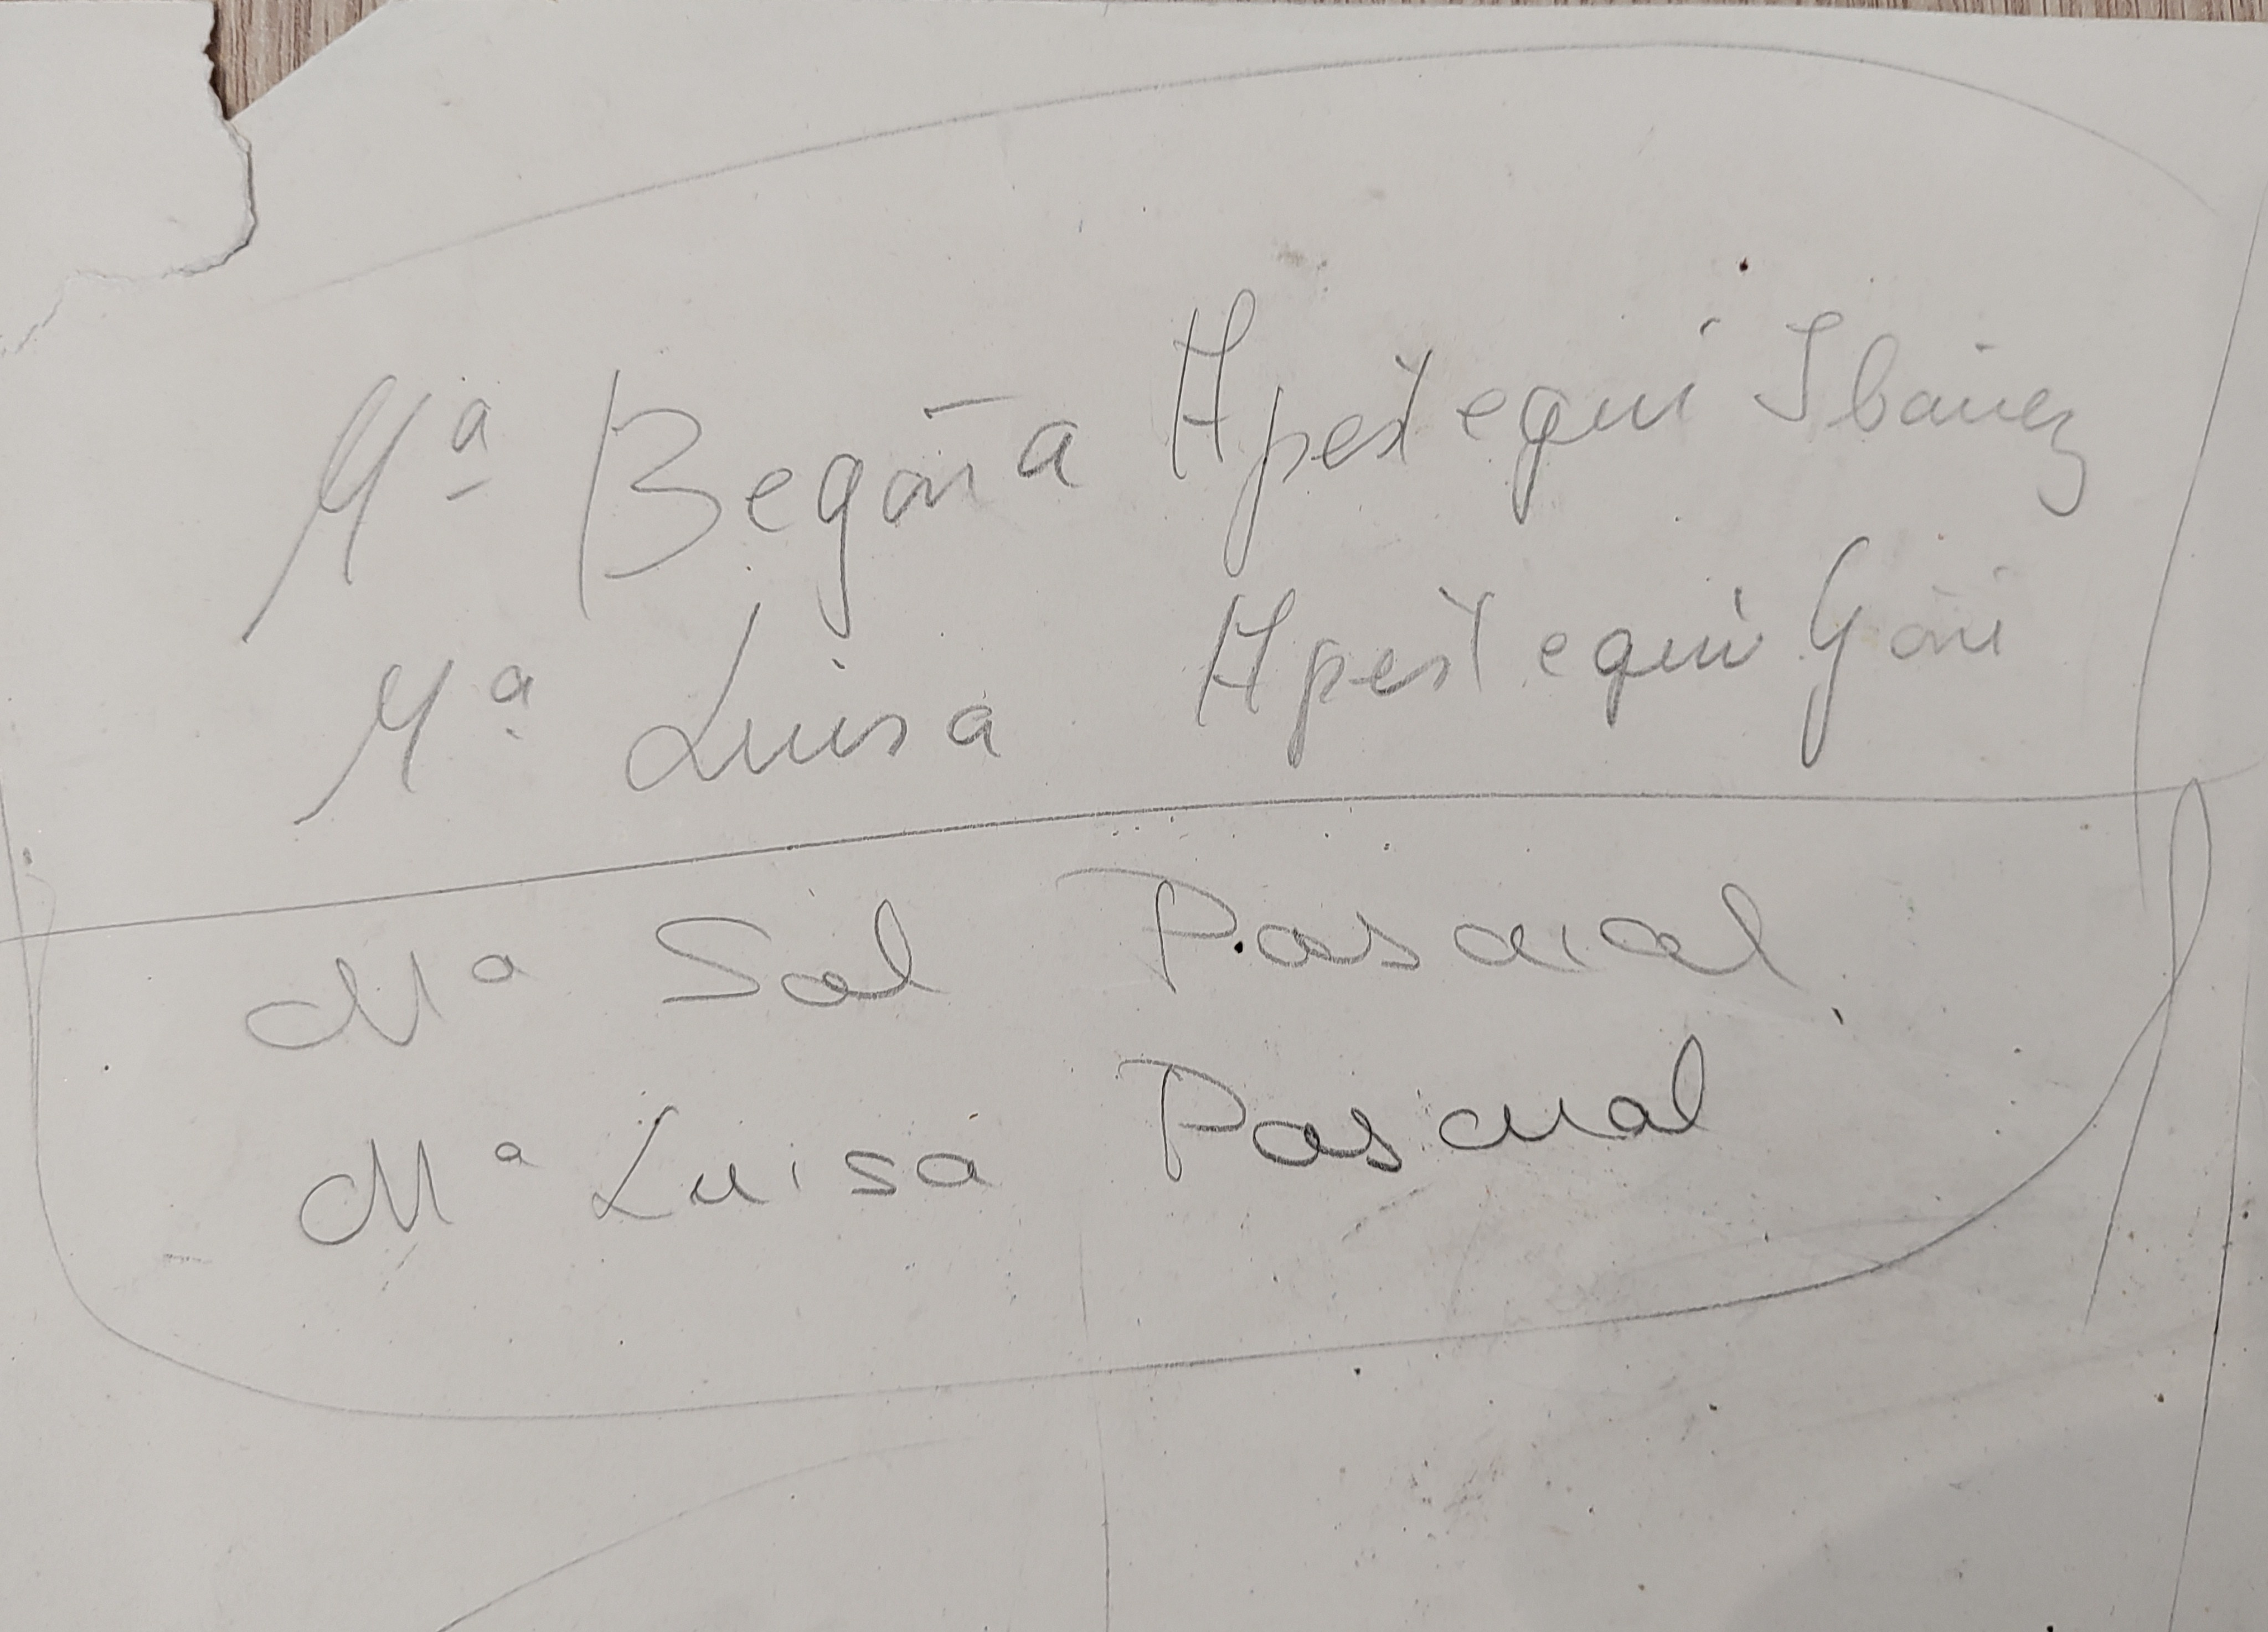 Mª Begoña Apestegui Ibañez
Mª Luisa Apestegui Goñi
Mª Sol Pascual
Mª Luisa Pascual